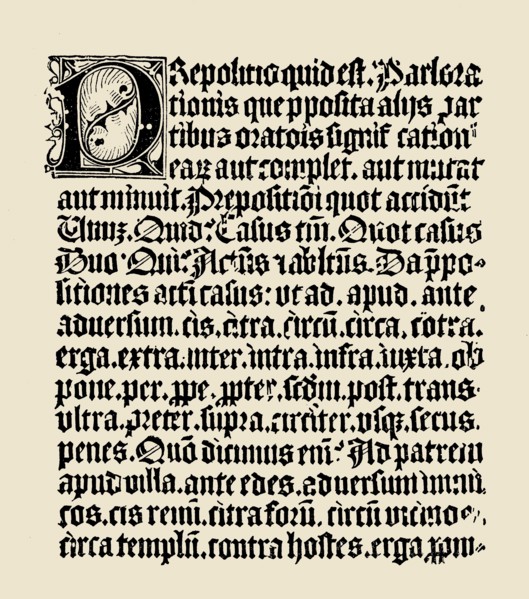 PRepositio quid est. Pars ora
tionis que pposita alijs par
tibus orationis significationē
earum aut complet. aut mutat
aut minuit. Prepositiōi quot accidūt
Unum. Quid? Casus tm̄. Quot casus
Duo. Qui? Actūs & ablatūs. Da ppo-
sitiones acti casus: vt ad. apud. ante
aduersum. cis. citra. circū. circa. cōtra.
erga. extra. inter. intra. infra. iuxta. ob
pone. per. ppe. ppter. scdm. post. trans.
vltra. preter. supra. circiter. vsqꝫ. secus.
penes. Quō dicimus eni? Ad patrem
apud villa. ante edes. aduersum inimi
cos. cis renū. citra forū. circū vicinos.
circa templū. contra hostes. erga ppin-